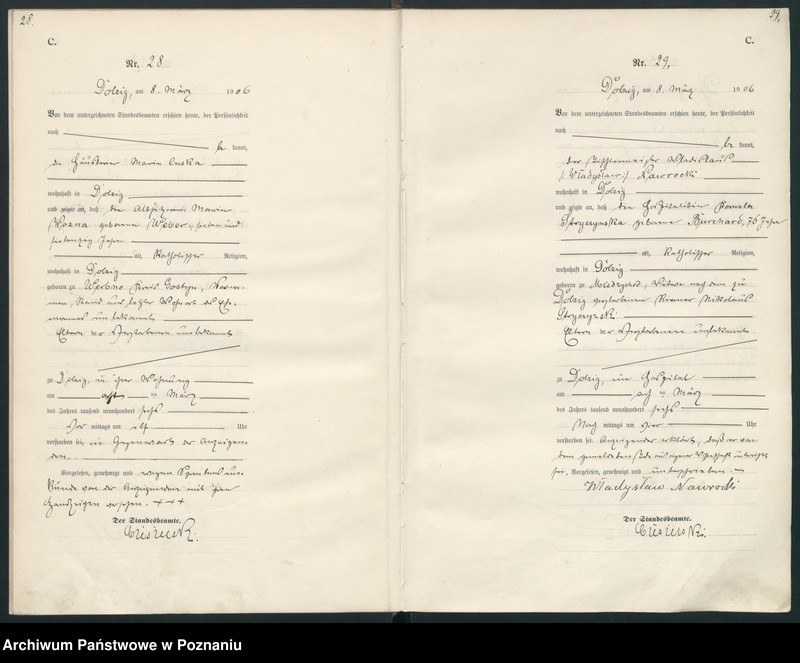 28.
C.
Nr. 28
Dolzig, am 8. März 1906
Vor dem unterzeichneten Standesbeamten erschien heute, der Persönlichkeit
nach
be kannt,
die Häuslerin Maria Cuska
wohnhaft in Dolzig
und zeigte an, daß die Maria
Wozna geborene Weber, sieben und
siebenzig Jahre
alt, katholischer Religion,
wohnhaft in Dolzig
geboren zu Kreis Gostyn,
Stand und letzter Wohnort des Ehe-
mannes unbekannt
Eltern der Verstorbenen unbekannt
zu Dolzig, in ihrer Wohnung
am acht ten März
des Jahres tausend neunhundert sechs
Vor mittags um elf Uhr
verstorben sei, in Gegenwart der Anzeigen-
den.
Vorgelesen, genehmigt und wegen Schreibens un-
kunde von der Anzeigenden mit ihren
Handzeichen versehen. + + +
Der Standesbeamte.
29.
C.
Nr. 29.
Dolzig, am 8. März 1906
Vor dem unterzeichneten Standesbeamten erschien heute, der Persönlichkeit
nach
be kannt,
der Tischlermeister Wladislaus
(: Władysław :) Nawrocki
wohnhaft in Dolzig
und zeigte an, daß die Hospitalitin
geborene Burchard, 76 Jahre
alt, katholischer Religion,
wohnhaft in Dolzig
geboren zu Witwe nach dem zu
Dolzig verstorbenen Riemer Nikolaus
Eltern der Verstorbenen unbekannt
zu Dolzig, im Hospital
am ach ten März
des Jahres tausend neunhundert sechs
Nach mittags um vier Uhr
verstorben sei. Anzeigender erklärt, daß er von
dem gemeldeten Tode aus eigener Wissenschaft unterrichtet
sei. Vorgelesen, genehmigt und unterschrieben.
Władysław Nawrocki
Der Standesbeamte.
Archiwum Państwowe w Poznaniu